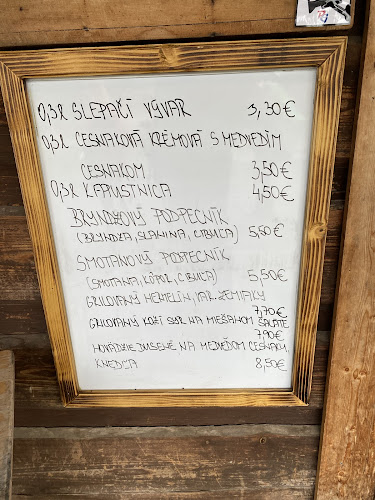 0,3l SLEPAČÍ VÝVAR 3,30€
0,3l CESNAKOVÁ KRÉMOVÁ S MEDVEDÍM
CESNAKOM 3,50€
0,3l KAPUSTNICA 4,50€
BRYNDZOVÝ PODPECNÍK
(BRYNDZA, SLANINA, CIBUĽA) 5,50€
SMOTANOVÝ PODPECNÍK
(SMOTANA, KÔPOR, CIBUĽA) 5,50€
GRILOVANÝ HERMELÍN, VAR. ZEMIAKY
7,70€
GRILOVANÝ KOZÍ SYR NA MIEŠANOM ŠALÁTE
7,90€
HOVÄDZIE DUSENÉ NA MEDVEĎOM CESNAKU,
KNEDĽA 8,50€